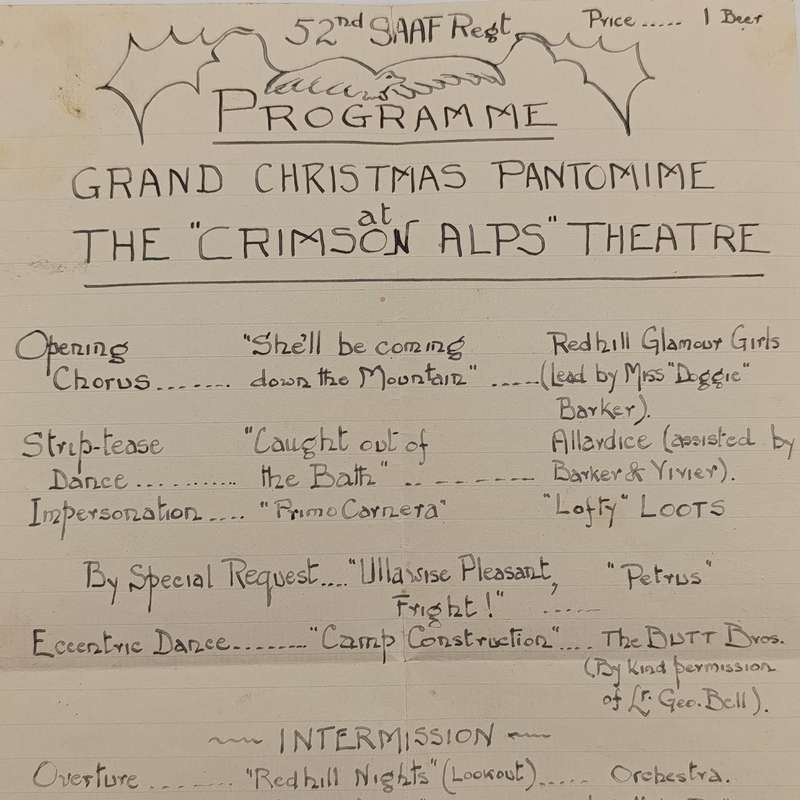 52nd SAAF Regt. Price..... 1 Beer
PROGRAMME
GRAND CHRISTMAS PANTOMIME
at
THE "CRIMSON ALPS" THEATRE
Opening "She'll be coming Redhill Glamour Girls
Chorus....... down the Mountain" .....(Lead by Miss "Doggie"
Barker).
Strip-tease "Caught out of Allardice (assisted by
Dance.......... the Bath" .. ------- Barker & Vivier).
Impersonation.... "Primo Carnera" "Lofty" LOOTS
By Special Request...."Ullawise Pleasant, "Petrus"
Fright!" ......
Eccentric Dance........."Camp Construction".... The BUTT Bros.
(By kind permission
of Lr. Geo. Bell).
~~ INTERMISSION ~~
Overture ........ "Redhill Nights" (Lookout)..... Orchestra.